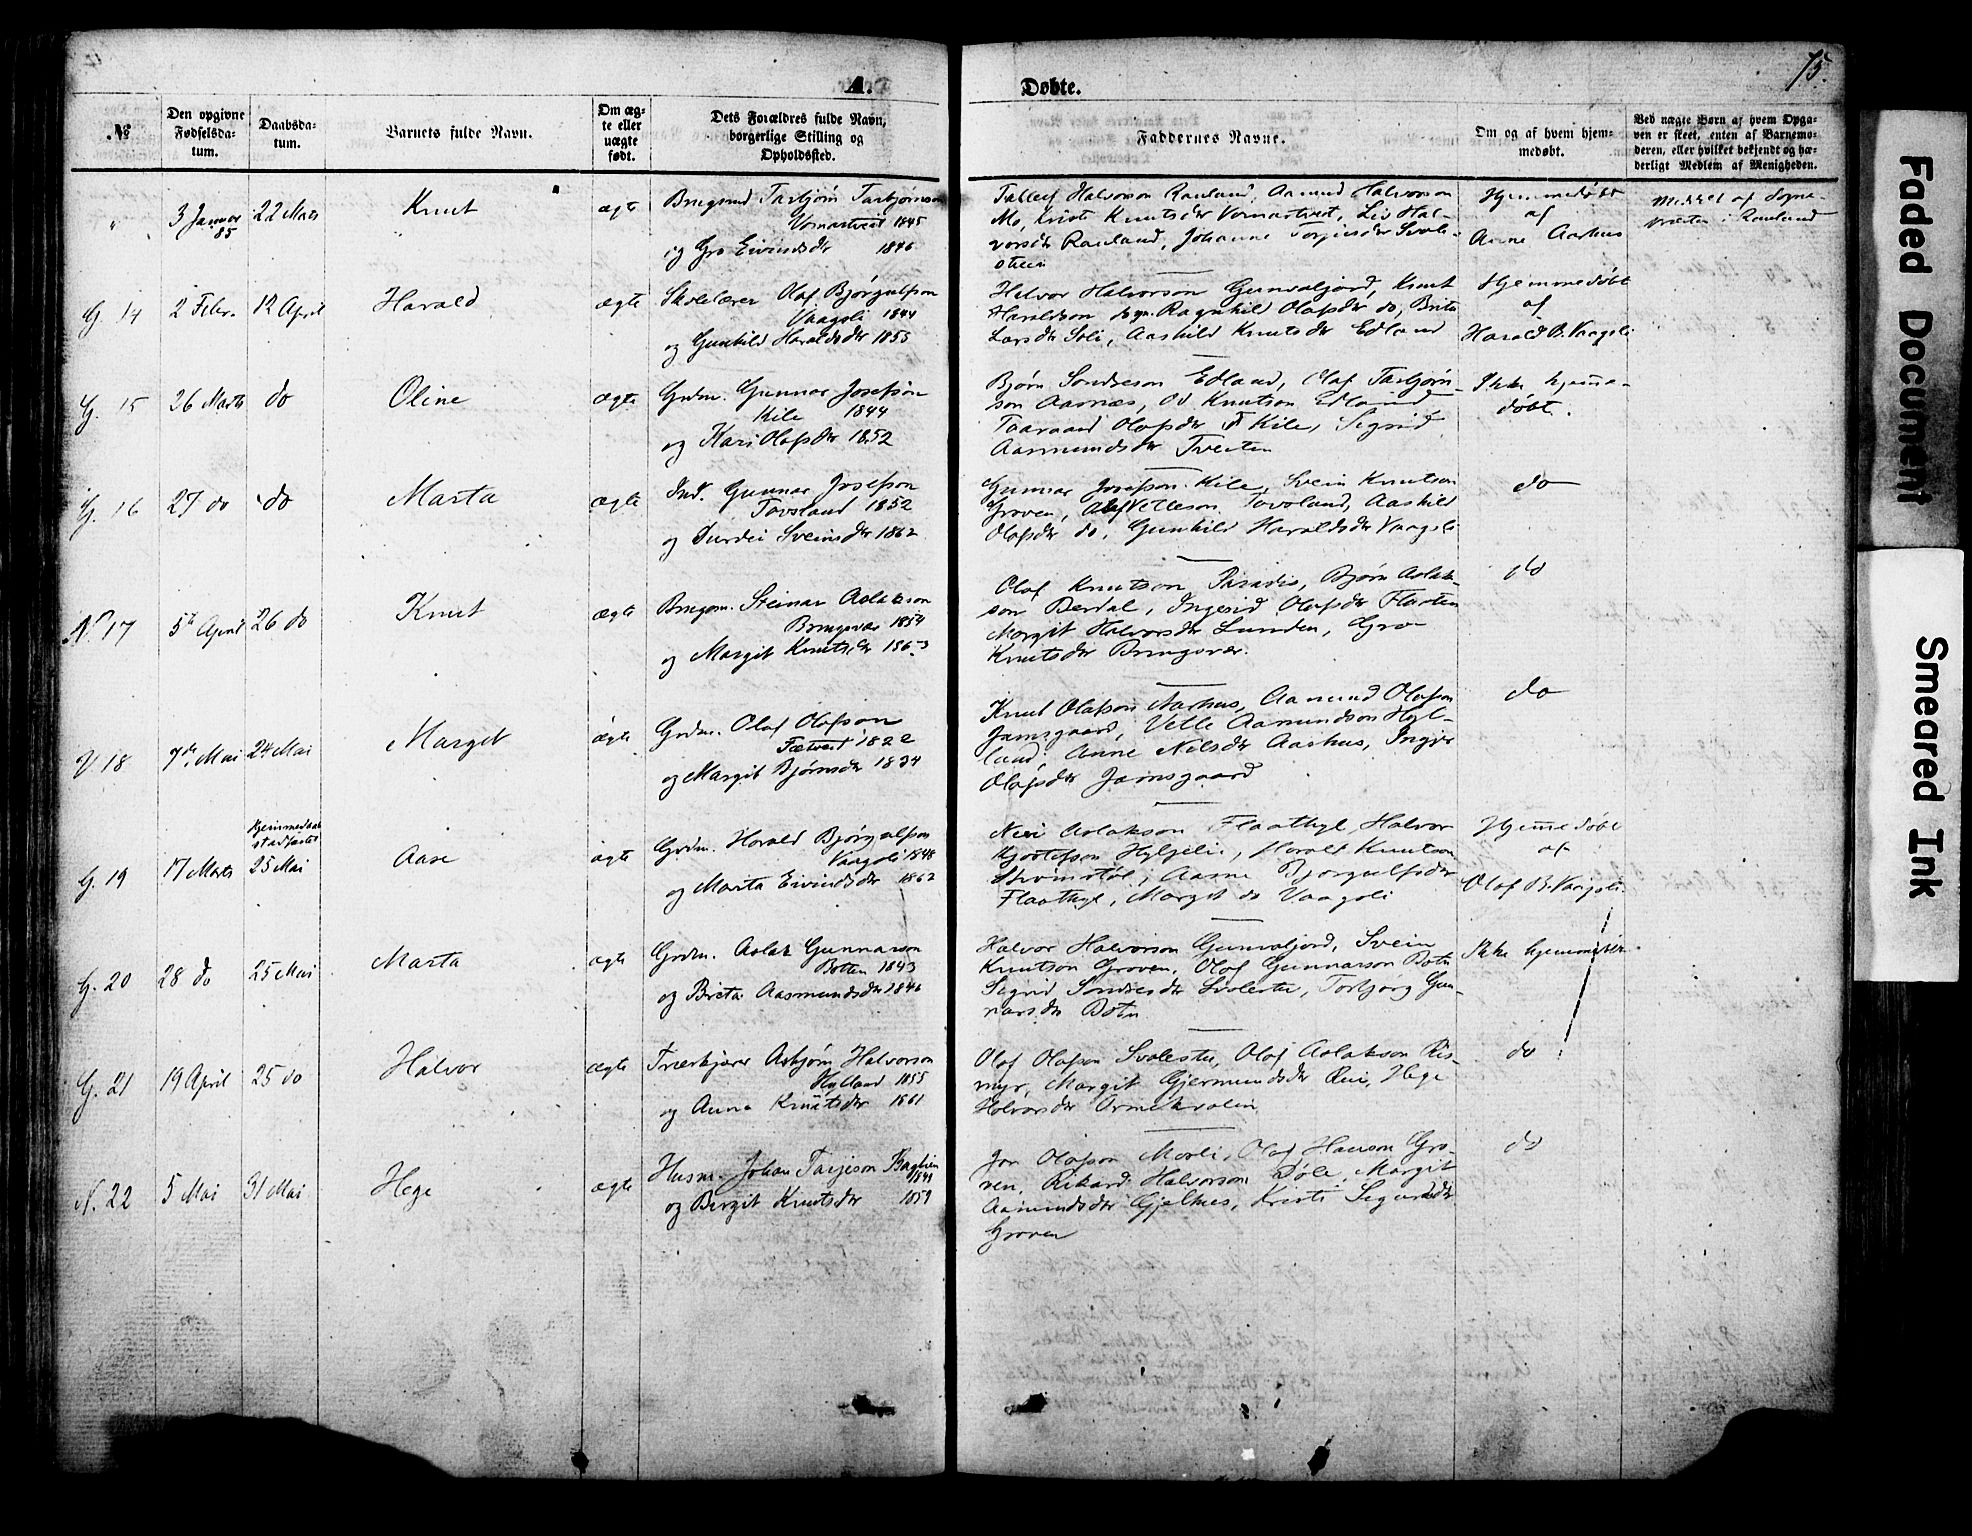 A.
Døbte.
75.
№
Den opgivne Fødselsdatum.
Daabsdatum.
Barnets fulde Navn.
Om ægte eller uægte født.
Dets Forældres fulde Navn, borgerlige Stilling og Opholdssted.
Faddernes Navne.
Om og af hvem hjemmedøbt.
Ved uægte Børn af hvem Opgaven er skeet, enten af Barnemoderen, eller hvilket bekjendt og hæderligt Medlem af Menigheden.
" 3 Januar 85 22 Marts Knut ægte
Tarbjørn Tarbjørnson
1845
og Gro Eivindsdr 1846
Halvorson Rauland, Aamund Halvorson
Mo, Knutsdr Liv Hal-
vorsdr Rauland, Johanne
Hjemmedøbt
af
Anne Aarhus
af Sogne-
præsten i Rauland
G. 14 2 Febr. 12 April Harald ægte
Skolelærer Olaf Bjørgulfson
Vaagsli 1844
og Gunhild Haraldsdr 1855
Halvor Halvorson Gunvaljord, Knut
Haraldson Ragnhild Olafsdr do,
Larsdr Aashild Knutsdr Edland
Hjemmedøbt
af
Harald B. Vaagsli
G. 15 26 Marts do Oline ægte
Grdm. Gunnar Josefson
Kile 1844
og Kari Olafsdr 1852
Bjørn Sondreson Edland, Olaf Tarbjørn-
son Aamnes, Od Knutson Edland
Taaraand Olafsdr Kile, Sigrid
Aasmundsdr Tveiten
Ikke hjemme-
døbt.
G. 16 27 do do Marta ægte
Ind. Gunnar Josefson
Tovsland 1852
og Sveinsdr 1862
Gunnar Josefson Kile, Svein Knutson
Groven, Olaf Vetleson Tovsland, Aashild
Olafsdr do, Gunhild Haraldsdr Vaagsli
do
N. 17 5te April 26 do Knut ægte
Brugsm. Steinar Aslakson
Bringsvær 1854
og Margit Knutsdr 1863
Olaf Knutson Paradis, Bjørn Aslak-
son Berdal, Ingerid Olafsdr Flaaten
Margit Halvorsdr Lunden, Gro
Knutsdr Bringsvær.
do
V. 18 7de Mai 24 Mai Margit ægte
Grdm. Olaf Olafson
1822
og Margit Bjørnsdr 1834
Knut Olafson Aarhus, Aamund Olafson
Jamsgaard, Vetle Aamundson Hyl-
land, Anne Nilsdr Aarhus, Ingjer
Olafsdr Jamsgaard
do
Hjemmedaab
stadfæstet
G. 19 17 Marts 25 Mai Aase ægte
Grdm. Harald Bjørgulfson
Vaagsli 1848
og Marita Eivindsdr 1862
Neri Aslakson Flaathyl, Halvor
Harald Knutson
Aasne Bjørgulfsdr
Flaathyl, Margit do Vaagsli
Hjemmedøbt
af
Olaf B. Vaagsli.
G. 20 28 do 25 Mai Marta ægte
Grdm. Aslak Gunnarson
Botten 1843
og Brita Aasmundsdr 1846
Halvor Halvorson Gunvaljord, Svein
Knutson Groven, Olaf Gunnarson Botn
Sigrid Sondresdr Svolestu, Torbjørg Gun-
narsdr Botn
Ikke hjemmedøbt
G. 21 19 April 25 do Halvor ægte
Asbjørn Halvorson
Hylland 1855
og Anne Knutsdr 1861
Olaf Olafson Svolestu, Olaf Aslakson Ris-
myr, Margit Gjermundsdr Rui, Hege
Halvorsdr
do
N. 22 5 Mai 31 Mai Hege ægte
Husm. Johan Tarjeson Baglien
og Birgit Knutsdr 1859
Jon Olafson Morli, Olaf Hanson Gro-
ven, Rikard Halvorson Døle, Margit
Aamundsdr Gjelhus, Kristi Sigurdsdr
Groven
do
Faded Document
Smeared Ink